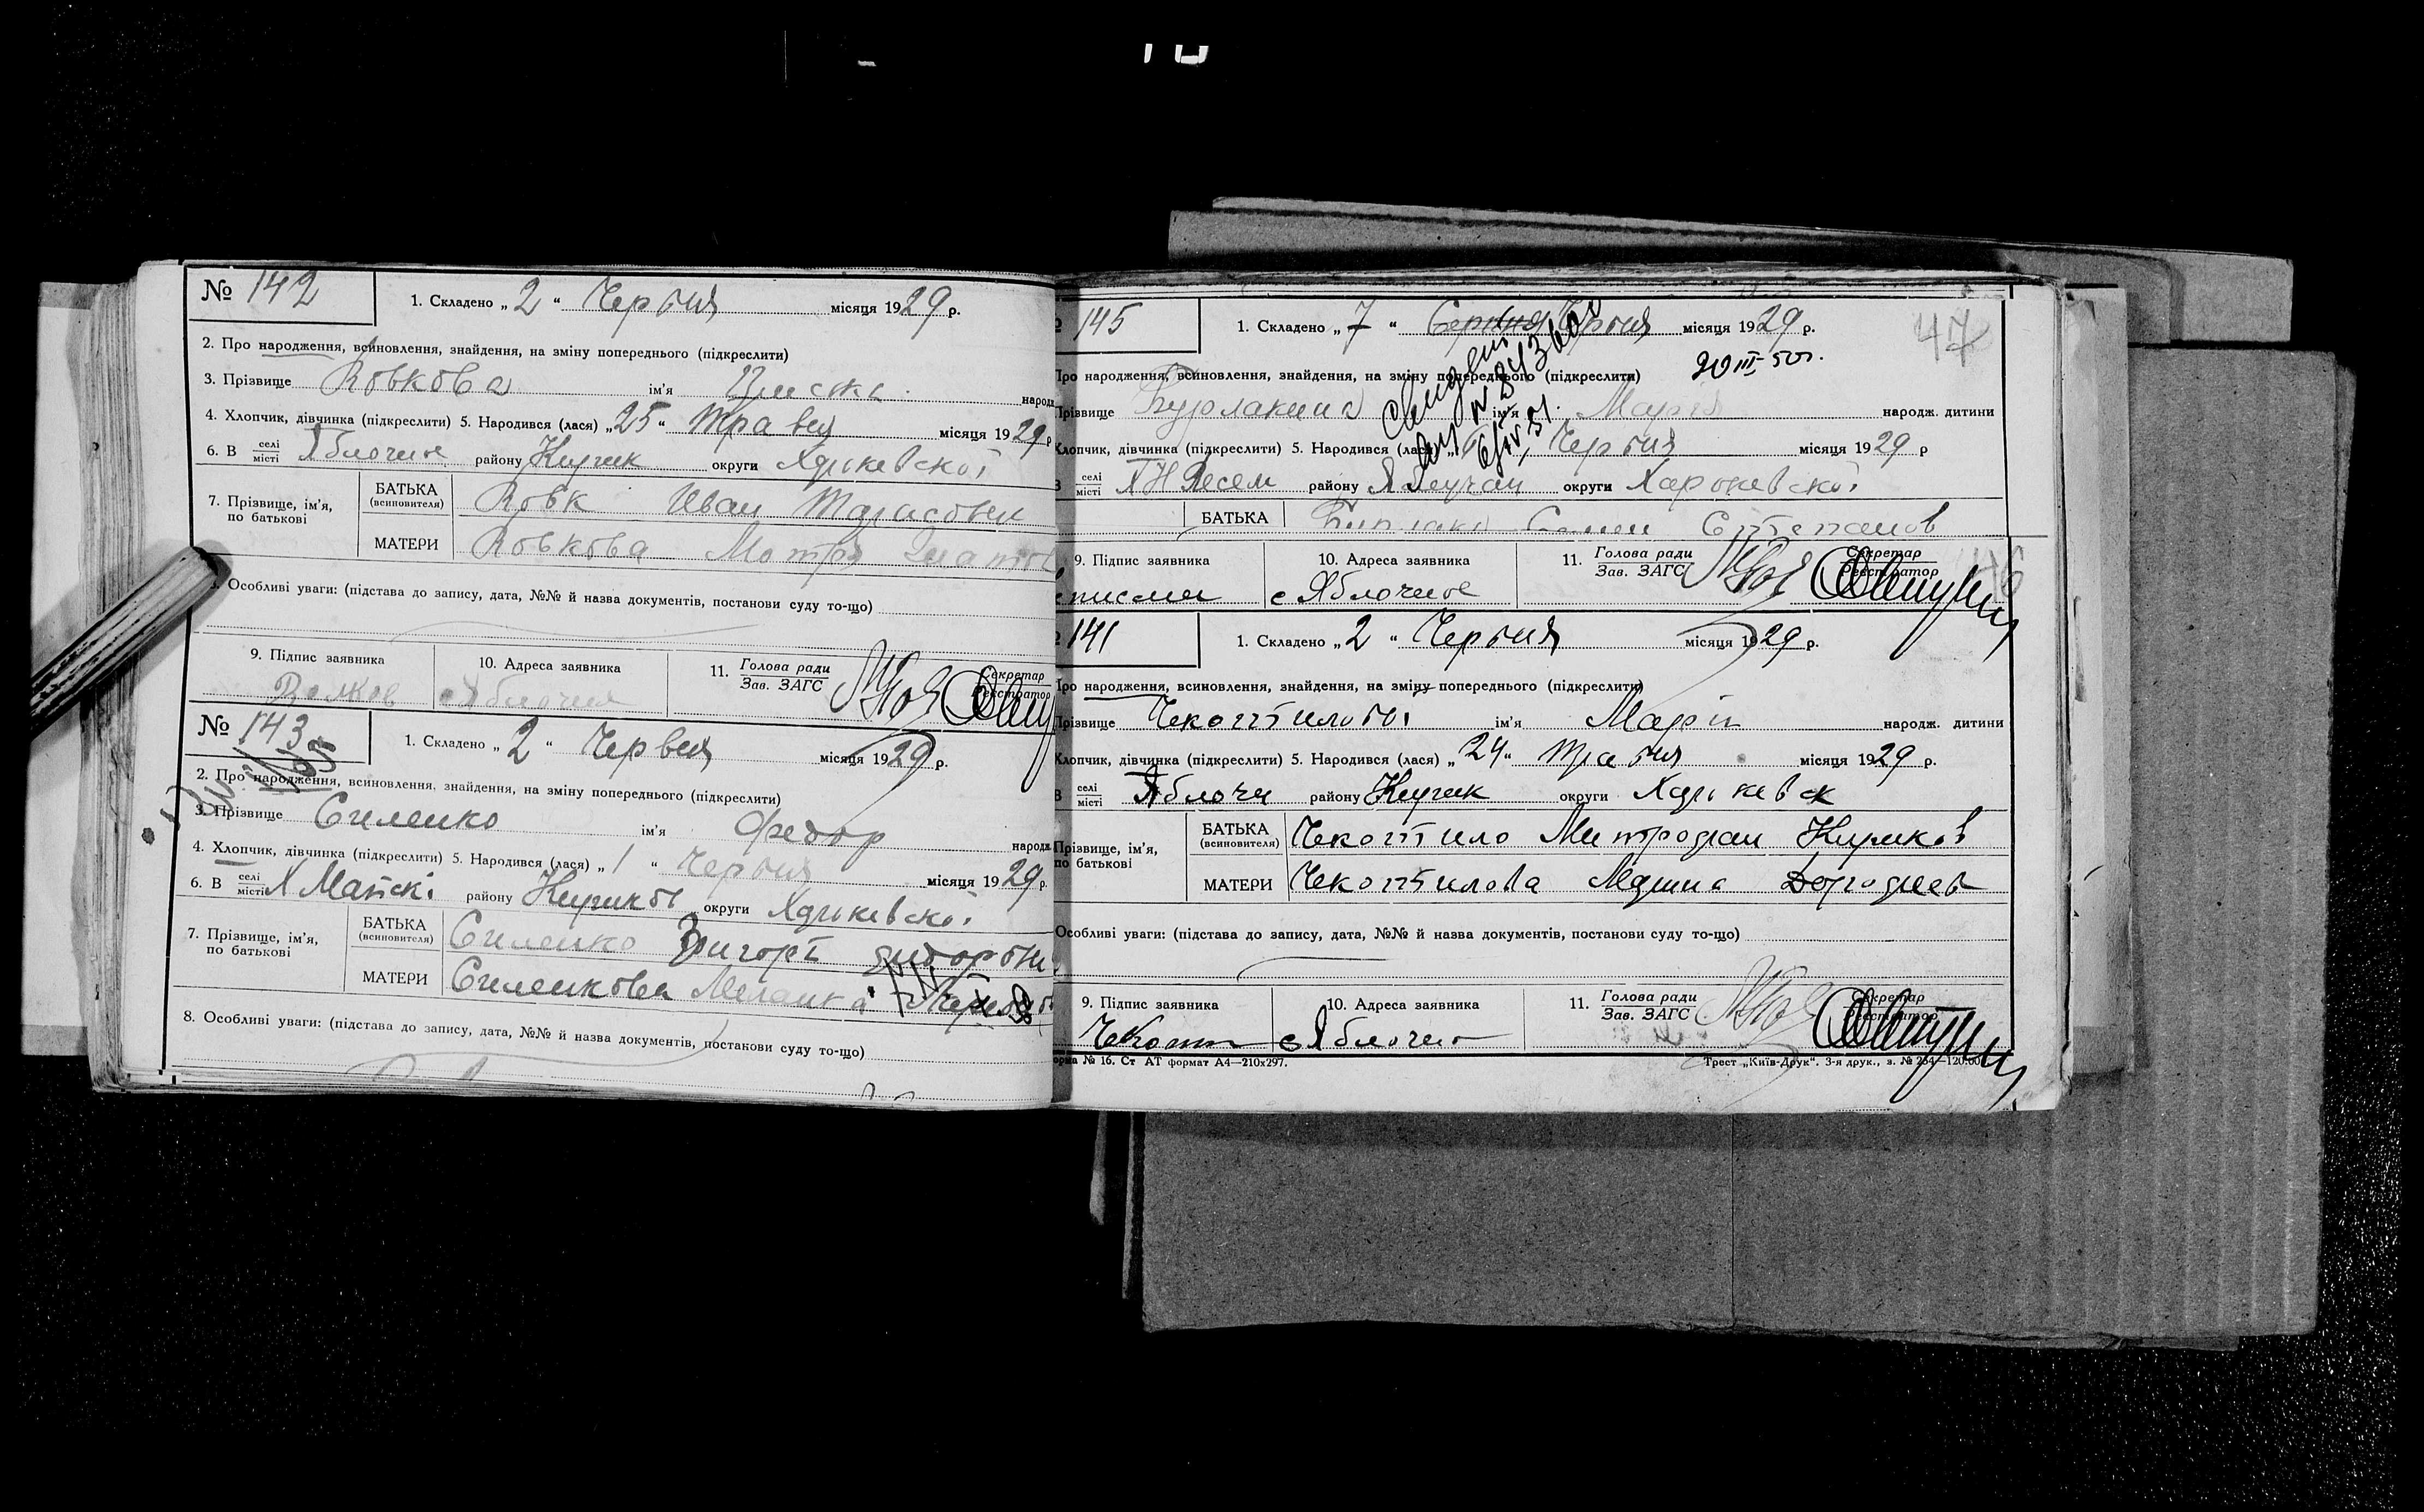 № 142
1. Складено „2“ Червня місяця 1929 р.
2. Про народження, всиновлення, знайдення, на зміну попереднього (підкреслити)
3. Прізвище Вовкова ім'я народж
4. Хлопчик, дівчинка (підкреслити) 5. Народився (лася) „25“ Травня місяця 1929 р
6. В селі місті Яблочне району округи Харькевської
7. Прізвище, ім'я, по батькові
БАТЬКА (всиновителя) Вовк Иван Тарасович
МАТЕРИ Вовкова Мотря
Особливі уваги: (підстава до запису, дата, №№ й назва документів, постанови суду то-що)
9. Підпис заявника 10. Адреса заявника 11. Голова ради Зав. ЗАГС Секретар Реєстратор
Волков Яблочна
№ 143
1. Складено „2“ Червня місяця 1929 р.
2. Про народження, всиновлення, знайдення, на зміну попереднього (підкреслити)
3. Прізвище Силенко ім'я Федор народж
4. Хлопчик, дівчинка (підкреслити) 5. Народився (лася) „1“ Червня місяця 1929 р.
6. В селі місті Х Майскі району округи Харькевської
7. Прізвище, ім'я, по батькові
БАТЬКА (всиновителя) Силенко Григорі
МАТЕРИ Силенкова Меланка
8. Особливі уваги: (підстава до запису, дата, №№ й назва документів, постанови суду то-що)
145
1. Складено „7“ Червня місяця 1929 р.
47
20 III-50г.
Про народження, всиновлення, знайдення, на зміну попереднього (підкреслити)
Прізвище Бурлакина ім'я Марія народж. дитини
Хлопчик, дівчинка (підкреслити) 5. Народився (лася) Червня місяця 1929 р
В селі місті району округи Харькевської
БАТЬКА Семен Степанов
9. Підпис заявника 10. Адреса заявника 11. Голова ради Зав. ЗАГС Секретар Реєстратор
с Яблочное
141
1. Складено „2“ Червня місяця 1929 р.
Про народження, всиновлення, знайдення, на зміну попереднього (підкреслити)
Прізвище Чекотилова ім'я Марія народж. дитини
Хлопчик, дівчинка (підкреслити) 5. Народився (лася) „24“ Травня місяця 1929 р.
В селі місті Яблочн району округи Харькевск
Прізвище, ім'я, по батькові
БАТЬКА (всиновителя) Чекотило Митрофан Кириков
МАТЕРИ Чекотилова Марина Дорофиев
Особливі уваги: (підстава до запису, дата, №№ й назва документів, постанови суду то-що)
9. Підпис заявника 10. Адреса заявника 11. Голова ради Зав. ЗАГС Секретар Реєстратор
Чекот с Яблочно
Форма № 16. Ст АТ формат А4—210х297. Трест „Київ-Друк“. 3-я друк., з. № 254—120.00